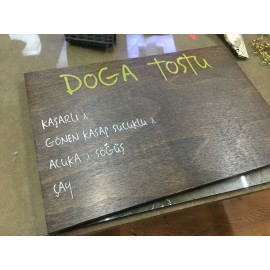 DOGA TOSTU
KAŞARLI &
GÖNEN KASAP SUCUKLU &
ACUKA & SÖĞÜŞ
ÇAY